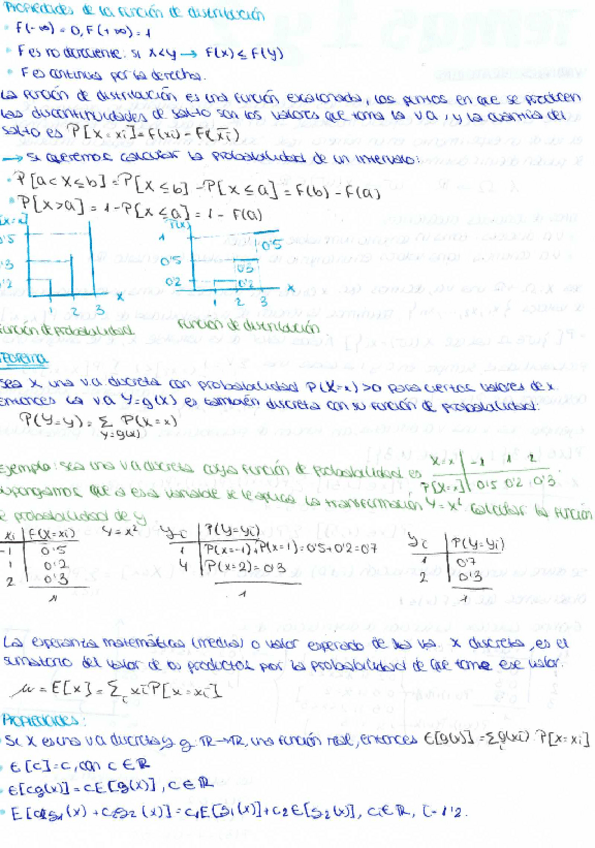 Propiedades de la función de distribución
• F(-∞) = 0, F(+∞) = 1
• F es no decreciente: si x<y → F(x) ≤ F(y)
• F es continua por la derecha.
La función de distribución es una función escalonada, los puntos en que se producen
las discontinuidades de salto son los valores que toma la va, y la cuantía del
salto es P[X=xi] = F(xi) - F(xi⁻)
→ Si queremos calcular la probabilidad de un intervalo:
• P[a<X≤b] = P[X≤b] - P[X≤a] = F(b) - F(a)
• P[X>a] = 1 - P[X≤a] = 1 - F(a)
0'5
0'3
0'2
2 3 x
F(x)
1
0'5
0'3
0'2 0'2
1 2 3 x
Función de probabilidad
Función de distribución
Teorema
Sea X, una va discreta con probabilidad P(X=x) >0 para ciertos valores de x
entonces la va Y=g(x) es también discreta con su función de probabilidad:
P(Y=y) = Σ P(X=x)
y=g(x)
Ejemplo: sea una va discreta cuya función de probabilidad es
X=x | -1 1 2
P[X=x] | 0'5 0'2 0'3
supongamos que a esa variable se le aplica la transformación Y=x² calcular la función
de probabilidad de Y
xi | F(X=xi)
-1 | 0'5
1 | 0'2
2 | 0'3
1
Y=x²
yi | P(Y=yi)
1 | P(X=-1)+P(X=1)=0'5+0'2=0'7
4 | P(X=2)=0'3
1
yi | P(Y=yi)
1 | 0'7
2 | 0'3
1
La esperanza matemática (media) o valor esperado de la va X discreta, es el
sumatorio del valor de os productos por la probabilidad de que tome ese valor.
μ = E[x] = Σ xi P[X=xi]
i
Propiedades:
• Si X es una va discreta y g ℝ→ℝ, una función real, entonces E[g(x)] = Σg(xi) P[X=xi]
• E[c]=c, con c∈ℝ
• E[cg(x)] = cE[g(x)], c∈ℝ
• E[c1g1(x) + c2g2(x)] = c1E[g1(x)]+c2E[g2(x)], ci∈ℝ, i=1'2.